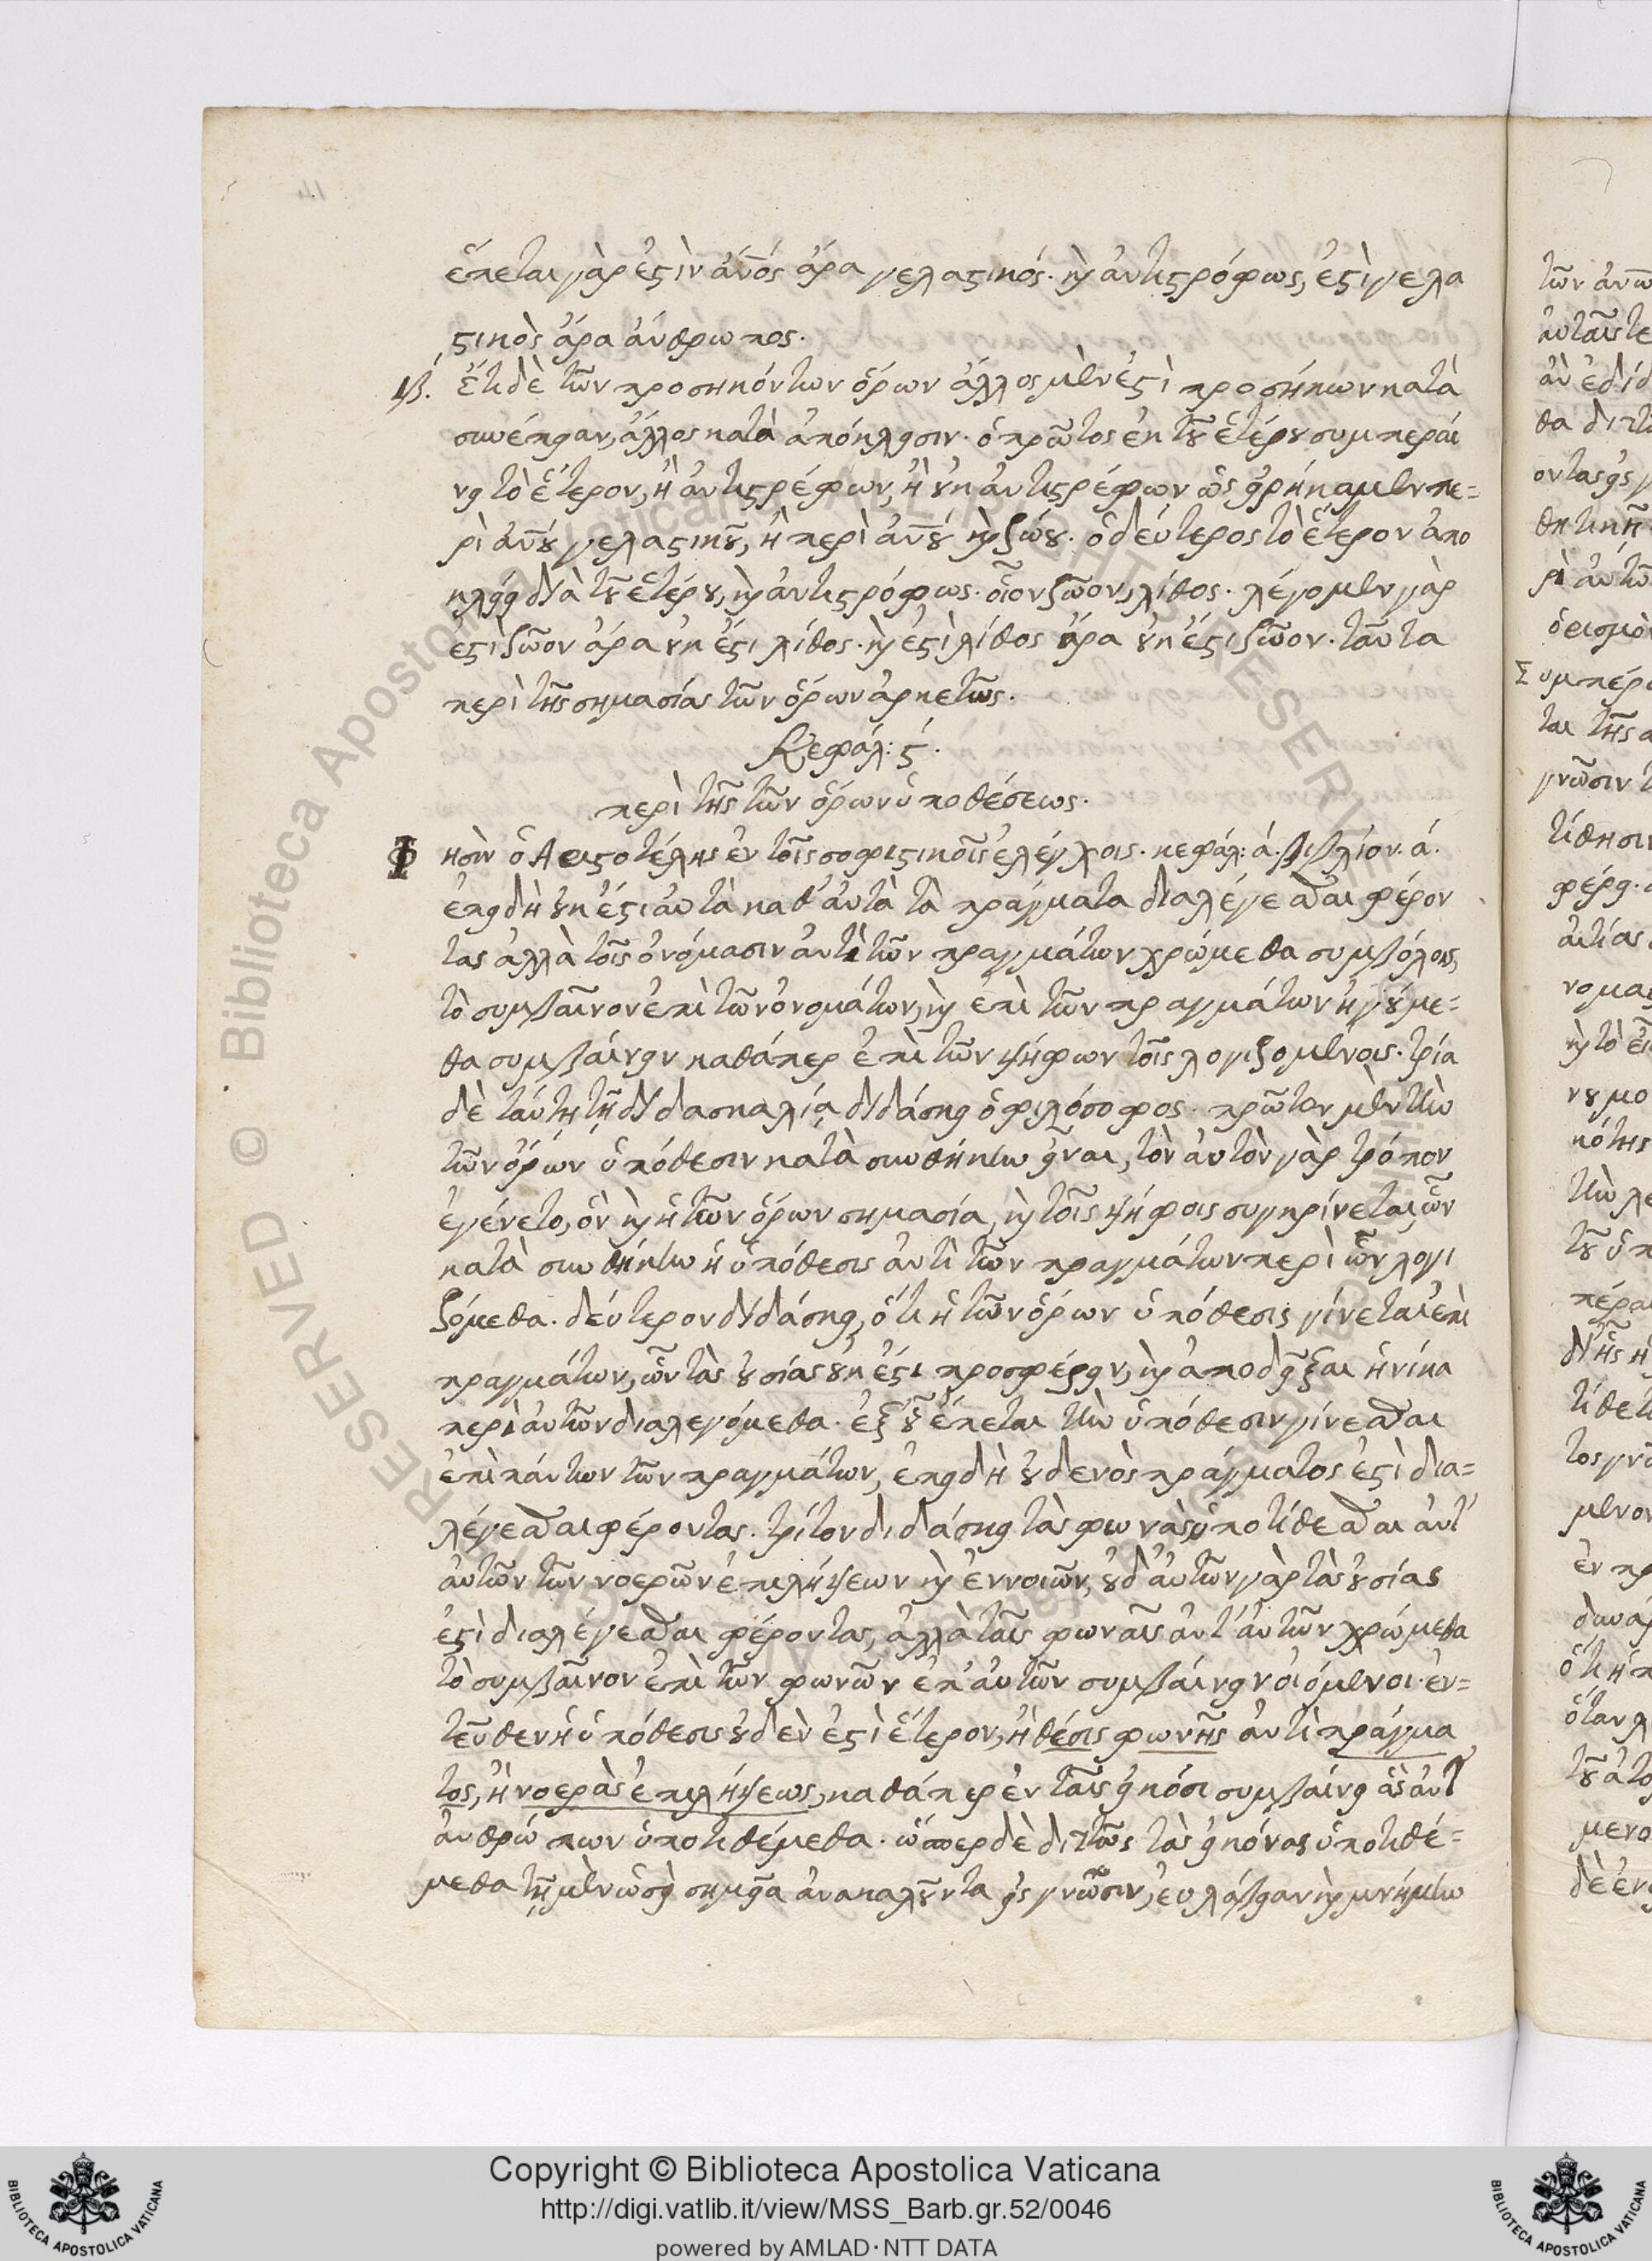 ἕπεται γὰρ ἐστὶν ἄνος ἄρα γελαστικός. καὶ ἀντιστρόφως, ἐστὶ γελα
στικὸς ἄρα ἄνθρωπος.
ιβ. Ἔτι δὲ τῶν προσηκόντων ὅρων ἄλλος μὲν ἐστὶ προσήκων κατὰ
συνέπειαν, ἄλλος κατὰ ἀπόκλεισιν. ὁ πρῶτος ἐκ τοῦ ἑτέρου συμπεραί
νει τὸ ἕτερον, ἢ ἀντιστρέφων, ἢ οὐκ ἀντιστρέφων ὡς εἰρήκαμεν πε=
ρὶ ἀνου γελαστικοῦ, ἢ περὶ ἀνου καὶ ζώου. ὁ δεύτερος τὸ ἕτερον ἀπο
κλείει διὰ τοῦ ἑτέρου, καὶ ἀντιστρόφως. οἷον ζῶον, λίθος. λέγομεν γὰρ
ἐστὶ ζῶον ἄρα οὐκ ἔστι λίθος. καὶ ἐστὶ λίθος ἄρα οὐκ ἔστι ζῶον. ταῦτα
περὶ τῆς σημασίας τῶν ὅρων ἀρκετῶς.
Κεφάλ: ς΄.
περὶ τῆς τῶν ὅρων ὑποθέσεως.
Φησὶν ὁ Αριστοτέλης ἐν τοῖς σοφιστικοῖς ἐλέγχοις. κεφάλ: ά. βιβλίον. ά.
ἐπειδὴ οὐκ ἔστι αὐτὰ καθ' αὑτὰ τὰ πράγματα διαλέγεσθαι φέρον
τας ἀλλὰ τοῖς ὀνόμασιν ἀντὶ τῶν πραγμάτων χρώμεθα συμβόλοις,
τὸ συμβαῖνον ἐπὶ τῶν ὀνομάτων, καὶ ἐπὶ τῶν πραγμάτων ἡγούμε=
θα συμβαίνειν καθάπερ ἐπὶ τῶν ψήφων τοῖς λογιζομένοις. τρία
δὲ ταύτῃ τῇ διδασκαλίᾳ διδάσκει ὁ φιλόσοφος. πρῶτον μὲν τὴν
τῶν ὅρων ὑπόθεσιν κατὰ συνθήκην εἶναι, τὸν αὐτὸν γὰρ τρόπον
ἐγένετο, ὃν καὶ ἡ τῶν ὅρων σημασία, καὶ τοῖς ψήφοις συγκρίνεται, ὧν
κατὰ συνθήκην ἡ ὑπόθεσις ἀντὶ τῶν πραγμάτων περὶ ὧν λογι
ζόμεθα. δεύτερον διδάσκει, ὅτι ἡ τῶν ὅρων ὑπόθεσις γίνεται ἐπὶ
πραγμάτων, ὧν τὰς οὐσίας οὐκ ἔστι προσφέρειν, καὶ ἀποδεῖξαι ἡνίκα
περὶ αὐτῶν διαλεγόμεθα. ἐξ οὗ ἕπεται τὴν ὑπόθεσιν γίνεσθαι
ἐπὶ πάντων τῶν πραγμάτων, ἐπειδὴ οὐδενὸς πράγματος ἐστὶ δια=
λέγεσθαι φέροντας. τρίτον διδάσκει τὰς φωνὰς ὑποτίθεσθαι ἀντ'
αὐτῶν τῶν νοερῶν ἐπιλήψεων καὶ ἐννοιῶν, οὐδ' αὐτῶν γὰρ τὰς οὐσίας
ἐστὶ διαλέγεσθαι φέροντας, ἀλλὰ ταῖς φωναῖς ἀντ' αὐτῶν χρώμεθα
τὸ συμβαῖνον ἐπὶ τῶν φωνῶν ἐπ' αὐτῶν συμβαίνειν οἰόμενοι. ἐν=
τεῦθεν ἡ ὑπόθεσις οὐδὲν ἐστὶ ἕτερον, ἢ θέσις φωνῆς ἀντὶ πράγμα
τος, ἢ νοερὰς ἐπιλήψεως, καθάπερ ἐν ταῖς εἰκόσι συμβαίνει ἃς ἀντ'
ἀνθρώπων ὑποτιθέμεθα. ὥσπερ δὲ διττῶς τὰς εἰκόνας ὑποτιθέ=
μεθα τῇ μὲν ὡσεὶ σημεῖα ἀνακαλοῦντα εἰς γνῶσιν, εὐλάβειαν καὶ μνήμην
Copyright © Biblioteca Apostolica Vaticana
http://digi.vatlib.it/view/MSS_Barb.gr.52/0046
powered by AMLAD·NTT DATA